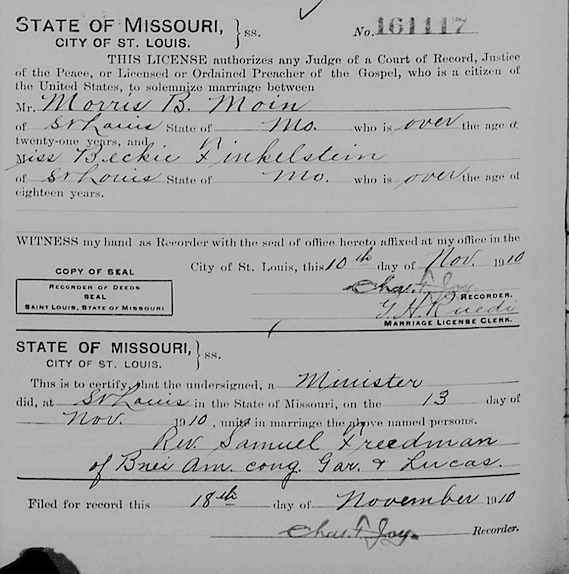 STATE OF MISSOURI, } ss. No. 161117
CITY OF ST. LOUIS.
THIS LICENSE authorizes any Judge of a Court of Record, Justice
of the Peace, or Licensed or Ordained Preacher of the Gospel, who is a citizen of
the United States, to solemnize marriage between
Mr. Morris B. Moin
of St Louis State of Mo. who is over the age o
twenty-one years, and
Miss Beckie Finkelstein
of St Louis State of Mo. who is over the age of
eighteen years.
WITNESS my hand as Recorder with the seal of office hereto affixed at my office in the
City of St. Louis, this 10th day of Nov. 1910
COPY OF SEAL
RECORDER OF DEEDS
SEAL
SAINT LOUIS, STATE OF MISSOURI
Chas. F. Joy.
RECORDER.
G. H. Ruedi
MARRIAGE LICENSE CLERK.
STATE OF MISSOURI, } ss.
CITY OF ST. LOUIS.
This is to certify, that the undersigned, a Minister
did, at St Louis in the State of Missouri, on the 13 day of
Nov. 1910, unite in marriage the above named persons.
Rev. Samuel Freedman
of Bnei Am. cong. Gar. & Lucas.
Filed for record this 18th day of November 1910
Chas. F. Joy. Recorder.